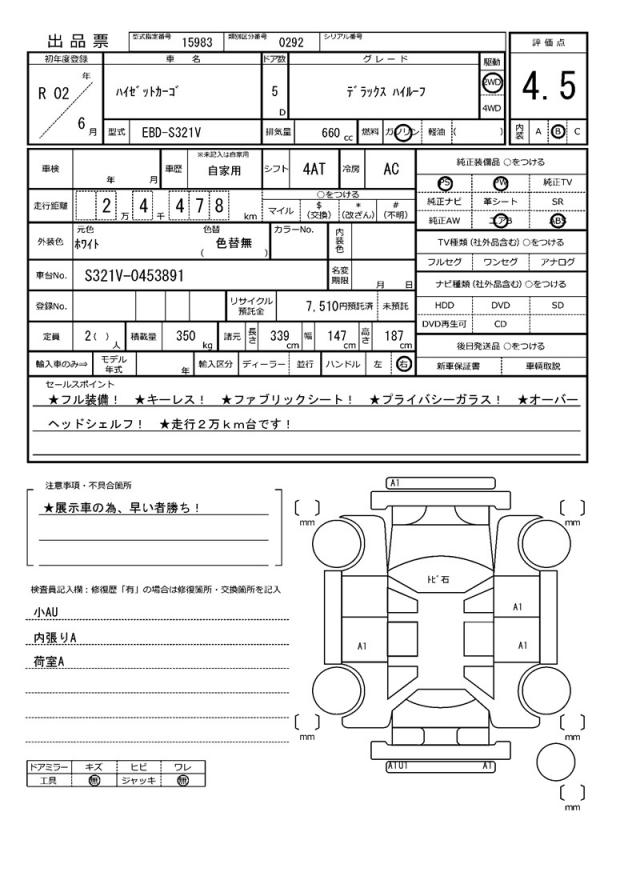 出品票 型式指定番号 15983 類別区分番号 0292 シリアル番号
評価点
4.5
内装 A B C
初年度登録 車名 ドア数 グレード 駆動
R 02 年 6 月 ﾊｲｾﾞｯﾄｶｰｺﾞ 5 D ﾃﾞﾗｯｸｽ ﾊｲﾙｰﾌ 2WD 4WD
型式 EBD-S321V 排気量 660 cc 燃料 ガソリン 軽油 ( )
車検 年 月 車歴 ※未記入は自家用 自家用 シフト 4AT 冷房 AC
走行距離 2 万 4 千 4 7 8 km ○をつける
マイル $ (交換) * (改ざん) # (不明)
外装色 元色 ﾎﾜｲﾄ 色替 ( 色替無 ) カラーNo. 内装色
車台No. S321V-0453891 名変期限 月 日
登録No. リサイクル預託金 7,510円預託済 未預託
定員 2( ) 人 積載量 350 kg 諸元 長さ 339 cm 幅 147 cm 高さ 187 cm
輸入車のみ⇒ モデル年式 年 輸入区分 ディーラー 並行 ハンドル 左 右
純正装備品 ○をつける
PS PW 純正TV
純正ナビ 革シート SR
純正AW エアB ABS
TV種類(社外品含む) ○をつける
フルセグ ワンセグ アナログ
ナビ種類(社外品含む) ○をつける
HDD DVD SD
DVD再生可 CD
後日発送品 ○をつける
新車保証書 車輌取説
セールスポイント
★フル装備! ★キーレス! ★ファブリックシート! ★プライバシーガラス! ★オーバー
ヘッドシェルフ! ★走行2万km台です!
注意事項・不具合箇所
★展示車の為、早い者勝ち!
検査員記入欄：修復歴「有」の場合は修復箇所・交換箇所を記入
小AU
内張りA
荷室A
ドアミラー キズ ヒビ ワレ
工具 無 ジャッキ 無
A1
mm mm
ﾄﾋﾞ石
A1
A1 A1
mm mm
A1U1 A1
mm